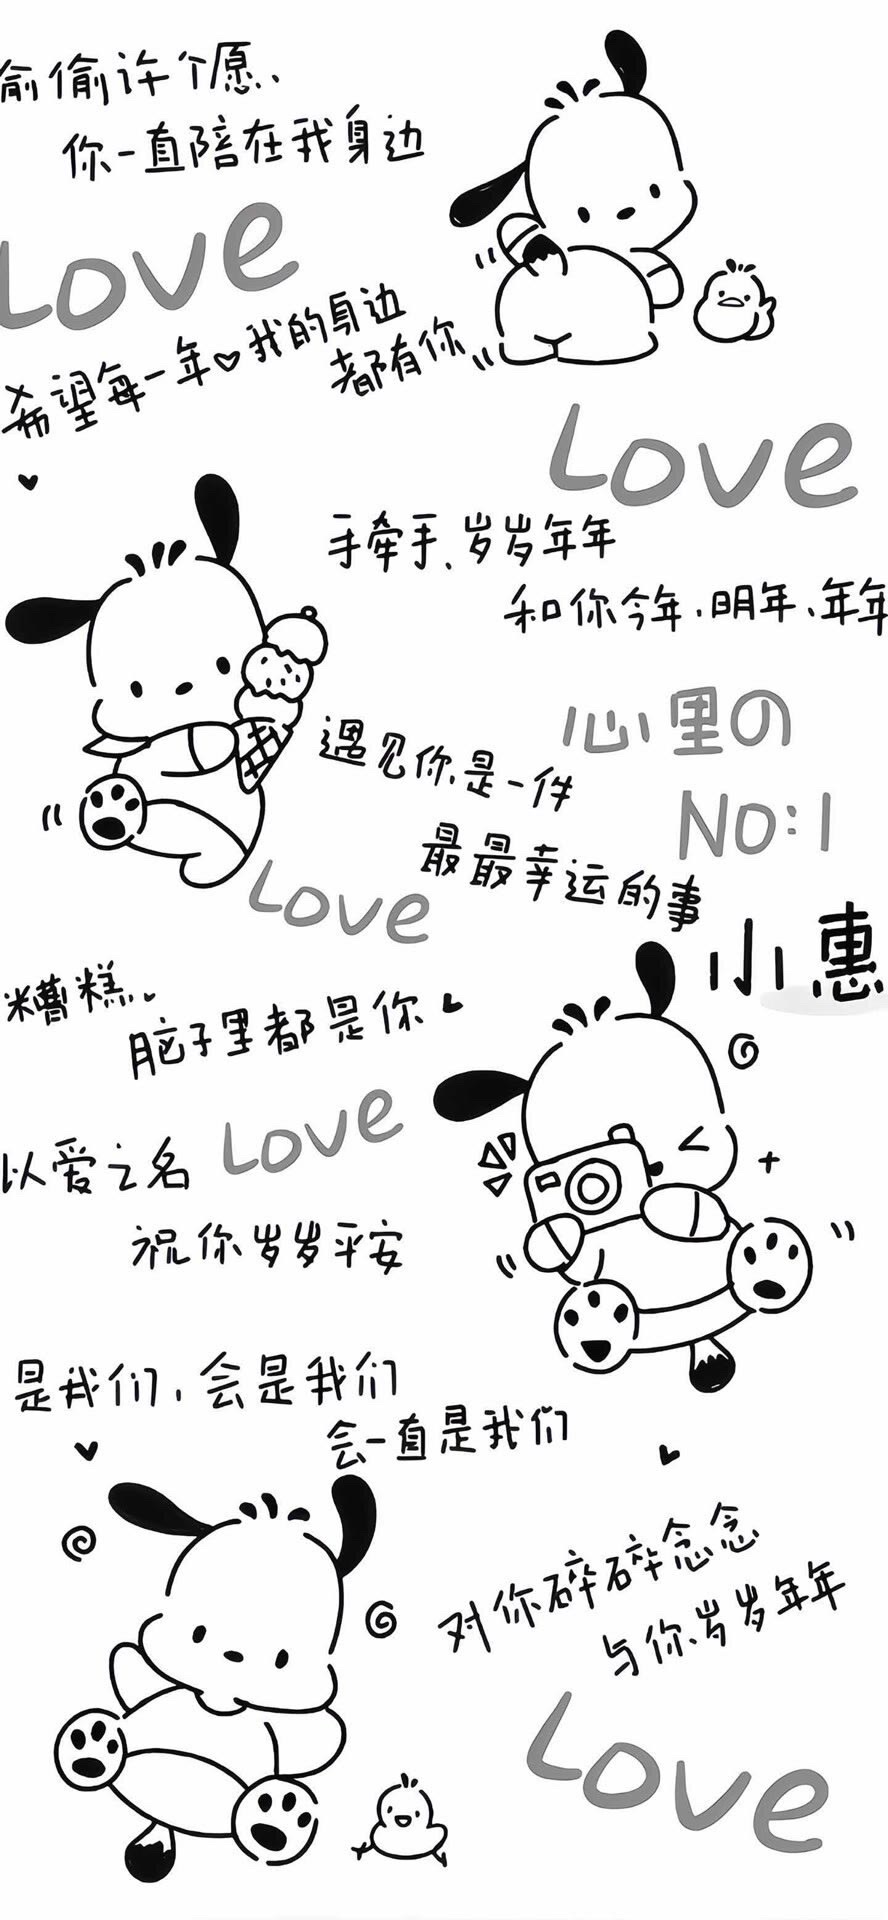 偷偷许个愿、
你一直陪在我身边
Love
希望每一年♥我的身边
都有你
Love
手牵手、岁岁年年
和你今年、明年、年年
心里の
NO:1
遇见你是一件
最最幸运的事
Love
小惠
糟糕..
脑子里都是你
Love
以爱之名
祝你岁岁平安
是我们，会是我们
会一直是我们
对你碎碎念念
与你岁岁年年
Love